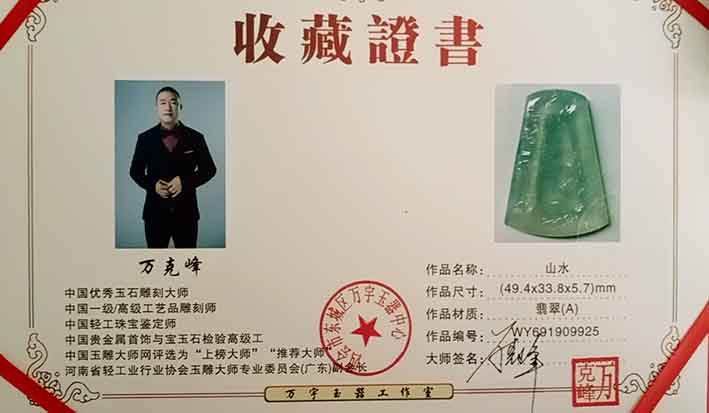 收藏證書
万克峰
中国优秀玉石雕刻大师
中国一级/高级工艺品雕刻师
中国轻工珠宝鉴定师
中国贵金属首饰与宝玉石检验高级工
中国玉雕大师网评选为“上榜大师”“推荐大师”
河南省轻工业行业协会玉雕大师专业委员会(广东)副会长
作品名称: 山水
作品尺寸: (49.4x33.8x5.7)mm
作品材质: 翡翠(A)
作品编号: WY691909925
大师签名:
四会市东城区万宇玉器中心
万克峰
万宇玉器工作室